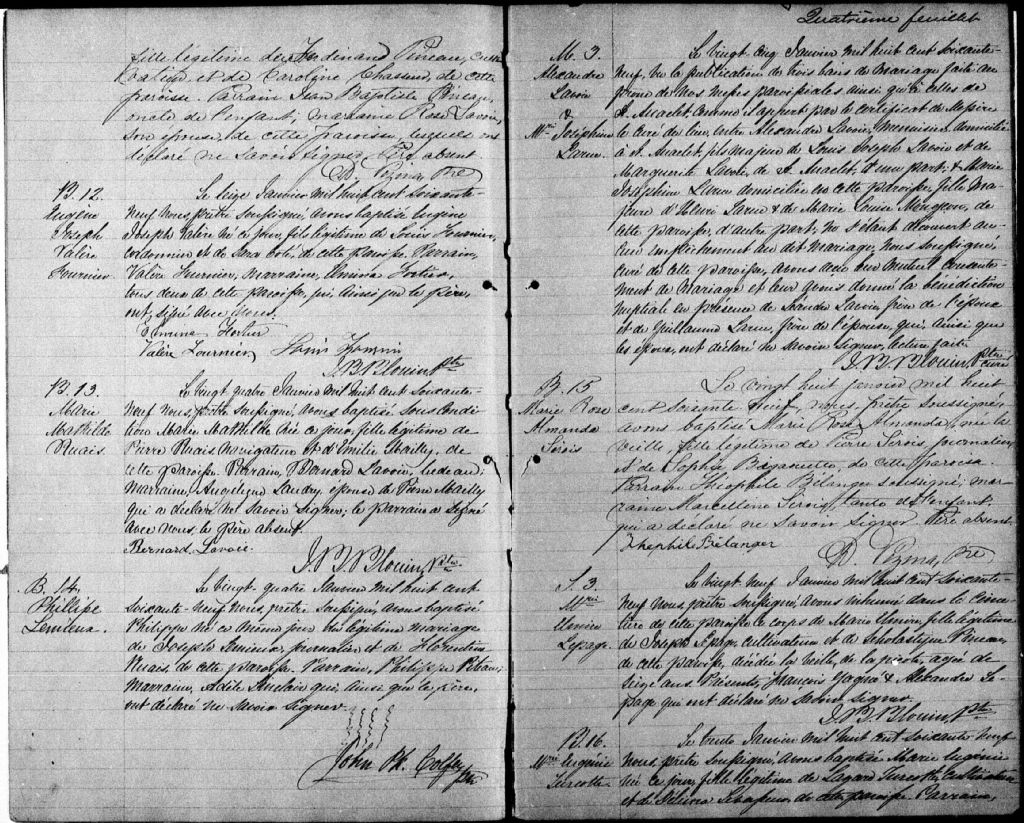 fille légitime de Ferdinand Pineau,
et de Caroline Chassend, de cette
paroisse. Parrain Jean Baptiste
oncle de l'enfant; marraine Rose Lavoie
son épouse, de cette paroisse, lesquels ont
déclaré ne savoir signer. Père absent.
B. 12.
Eugène
Joseph
Valère
Fournier
Le seize Janvier mil huit cent soixante-
neuf nous, prêtre soussigné, avons baptisé Eugène
Joseph Valère né ce jour, fils légitime de Louis Fournier,
cordonnier et de Côté, de cette paroisse. Parrain,
Valère Fournier, marraine, Elmina Fortier,
tous deux de cette paroisse, qui, ainsi que le père,
ont signé avec nous.
Elmina Fortier
Valère Fournier, Louis Fournier
J. B. Blouin Ptre
B. 13
Marie
Mathilde
Ruais.
Le vingt quatre Janvier mil huit cent soixante-
neuf nous, prêtre soussigné, avons baptisé sous condi
tion Marie Mathilde née ce jour, fille légitime de
Pierre Ruais Navigateur et d'Emilie Mailly, de
cette paroisse. Parrain, Bernard Lavoie, bedeau;
Marraine, Angélique Landry, épouse de Pierre Mailly
qui a déclaré ne savoir signer; le parrain a signé
avec nous. le père absent.
Bernard Lavoie.
J. B. Blouin, Ptre
B. 14.
Phillipe
Lemieux.
Le vingt quatre Janvier mil huit cent
soixante-neuf nous, prêtre soussigné, avons baptisé
Philippe né ce même jour du légitime mariage
de Joseph Lemieux, journalier et de Florentine
Ruais, de cette paroisse. Parrain, Philippe
Marraine, Adèle qui, ainsi que le père,
ont déclaré ne savoir signer.
John
Quatrième feuillet
M. 3
Alexandre
Lavoie
&
Mie Joséphine
Larue
Le vingt cinq Janvier mil huit cent soixante-
neuf, vu la publication de trois bans de mariage faite au
prône de nos messes paroissiales ainsi qu'à celles de
St. Anaclet, comme il appert par le certificat de Messire
le Curé du lieu, entre Alexandre Lavoie, Menuisier, domicilié
à St. Anaclet, fils majeur de Louis Joseph Lavoie et de
Marguerite de St. Anaclet, d'une part; & Marie
Joséphine Larue domiciliée en cette paroisse, fille ma
jeure d'Henri Larue & de Marie Louise de
cette paroisse, d'autre part; ne s'étant découvert au-
cun empêchement au dit mariage, nous soussigné,
curé de cette paroisse, avons reçu leur mutuel consente-
ment de Mariage et leur avons donné la bénédiction
nuptiale en présence de Lavoie, frère de l'époux
et de Guillaume Larue, frère de l'épouse, qui, ainsi que
les époux, ont déclaré ne savoir signer, lecture faite
J. B. Blouin Ptre
Curé
B. 15
Marie Rose
Amanda
Sirois
Le vingt huit janvier mil huit
cent soixante neuf, nous, prêtre soussigné
avons baptisé Marie Rose Amanda, née la
veille, fille légitime de Pierre Sirois journalier,
& de Sophie de cette paroisse.
Parrain Théophile Bélanger soussigné; mar
raine Marcelline Sirois, tante de l'enfant
qui a déclaré ne savoir signer. Père absent.
Théophile Bélanger
S. 3
Mie
Elmire
Lepage
Le vingt neuf Janvier mil huit cent soixante-
neuf nous, prêtre soussigné, avons inhumé dans le Cime
tière de cette paroisse le corps de Marie Elmire, fille légitime
de Joseph Lepage, cultivateur et de Scholastique Pineau
de cette paroisse, décédée la veille, de la picote, agée de
seize ans. Présents, François Gagné & Alexandre Le-
page qui ont déclaré ne savoir signer.
J. B. Blouin Ptre
B. 16.
Mie Eugénie
Turcotte
Le trente Janvier mil huit cent soixante neuf
nous, prêtre soussigné, avons baptisé Marie Eugénie
née ce jour, fille légitime de Lazare Turcotte, Cultivateur
et de de cette paroisse Parrain,